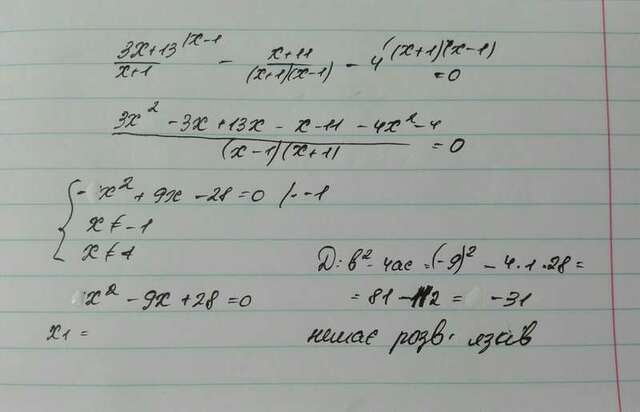 3x+13 /x-1 / x+1 - x+11 / (x+1)(x-1) - 4 /(x+1)(x-1) = 0
3x² - 3x + 13x - x - 11 - 4x² - 4 / (x-1)(x+1) = 0
{ - x² + 9x - 28 = 0 /· -1
x ≠ -1
x ≠ 1
D: b² - 4ac = (-9)² - 4·1·28 =
x² - 9x + 28 = 0
= 81 - 112 = -31
x1 =
немає розв'язків